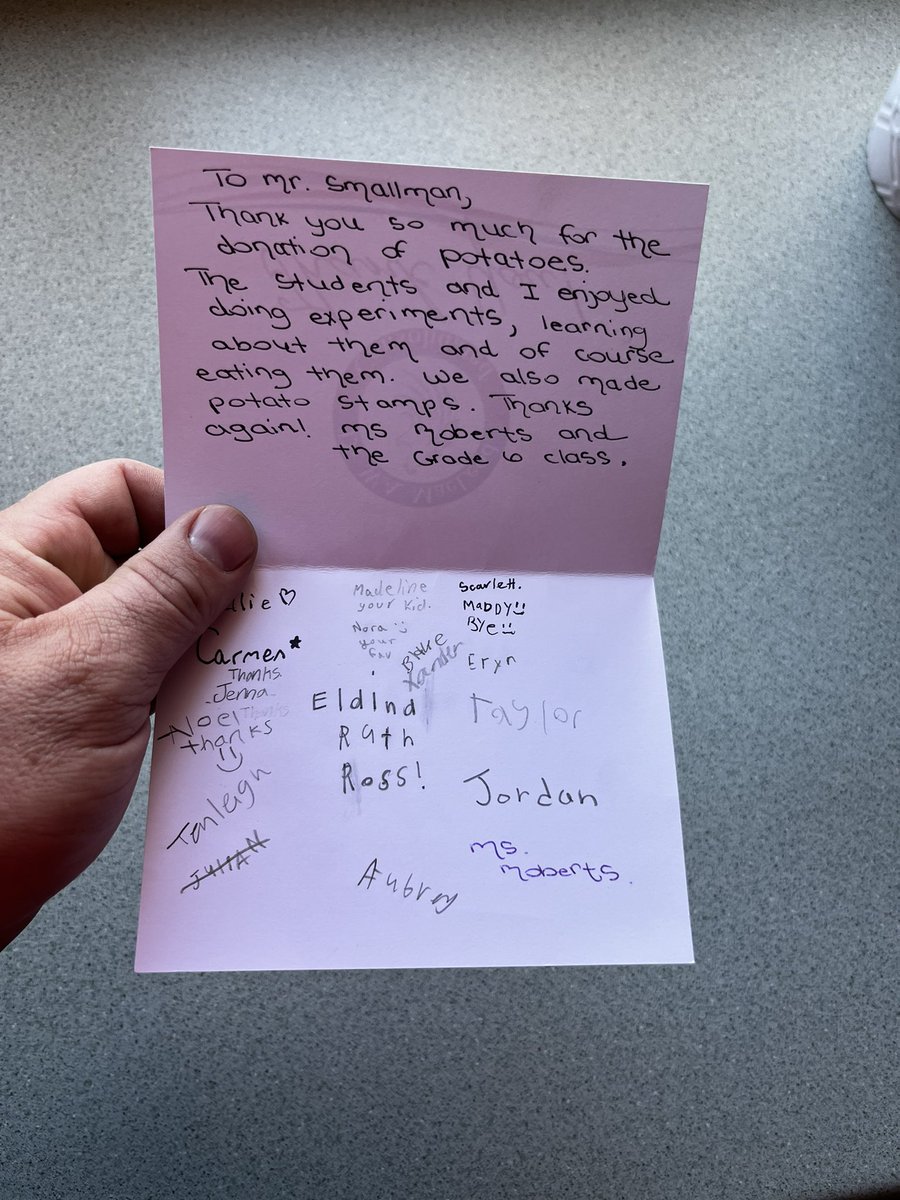 To Mr. Smallman,
Thank you so much for the
donation of potatoes.
The students and I enjoyed
doing experiments, learning
about them and of course
eating them. We also made
potato stamps. Thanks
again! Ms Roberts and
the Grade 6 class.
Carmen
Thanks
Jenna
Noel Thanks
thanks
JULIAN
Madeline
your kid.
Nora
your
fav
Blake
Xander
Eldind
Ruth
Ross!
Aubrey
Scarlett.
MADDY
Bye
Eryn
Taylor
Jordan
Ms.
Roberts.